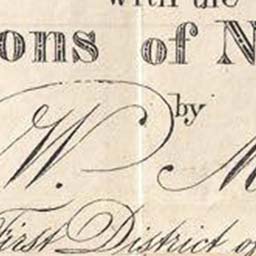 with the
ons of N
by
W. M
First District of